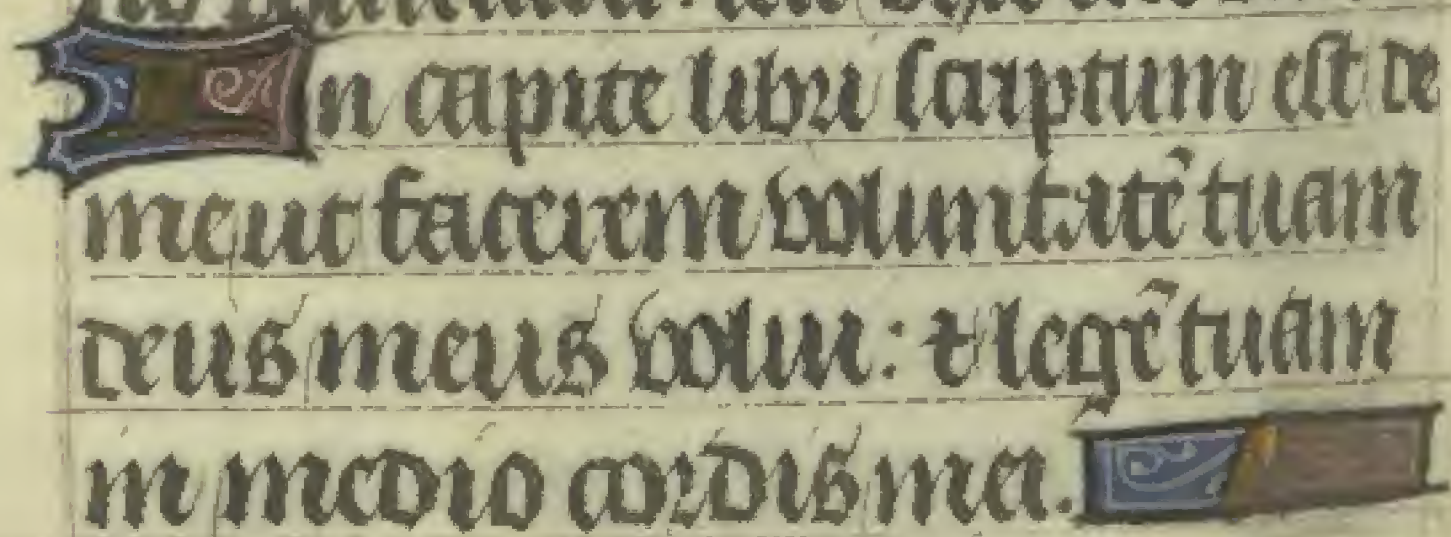 In capite libri scriptum est de
me ut facerem voluntatē tuam
deus meus volui: & legē tuam
in medio cordis mei.